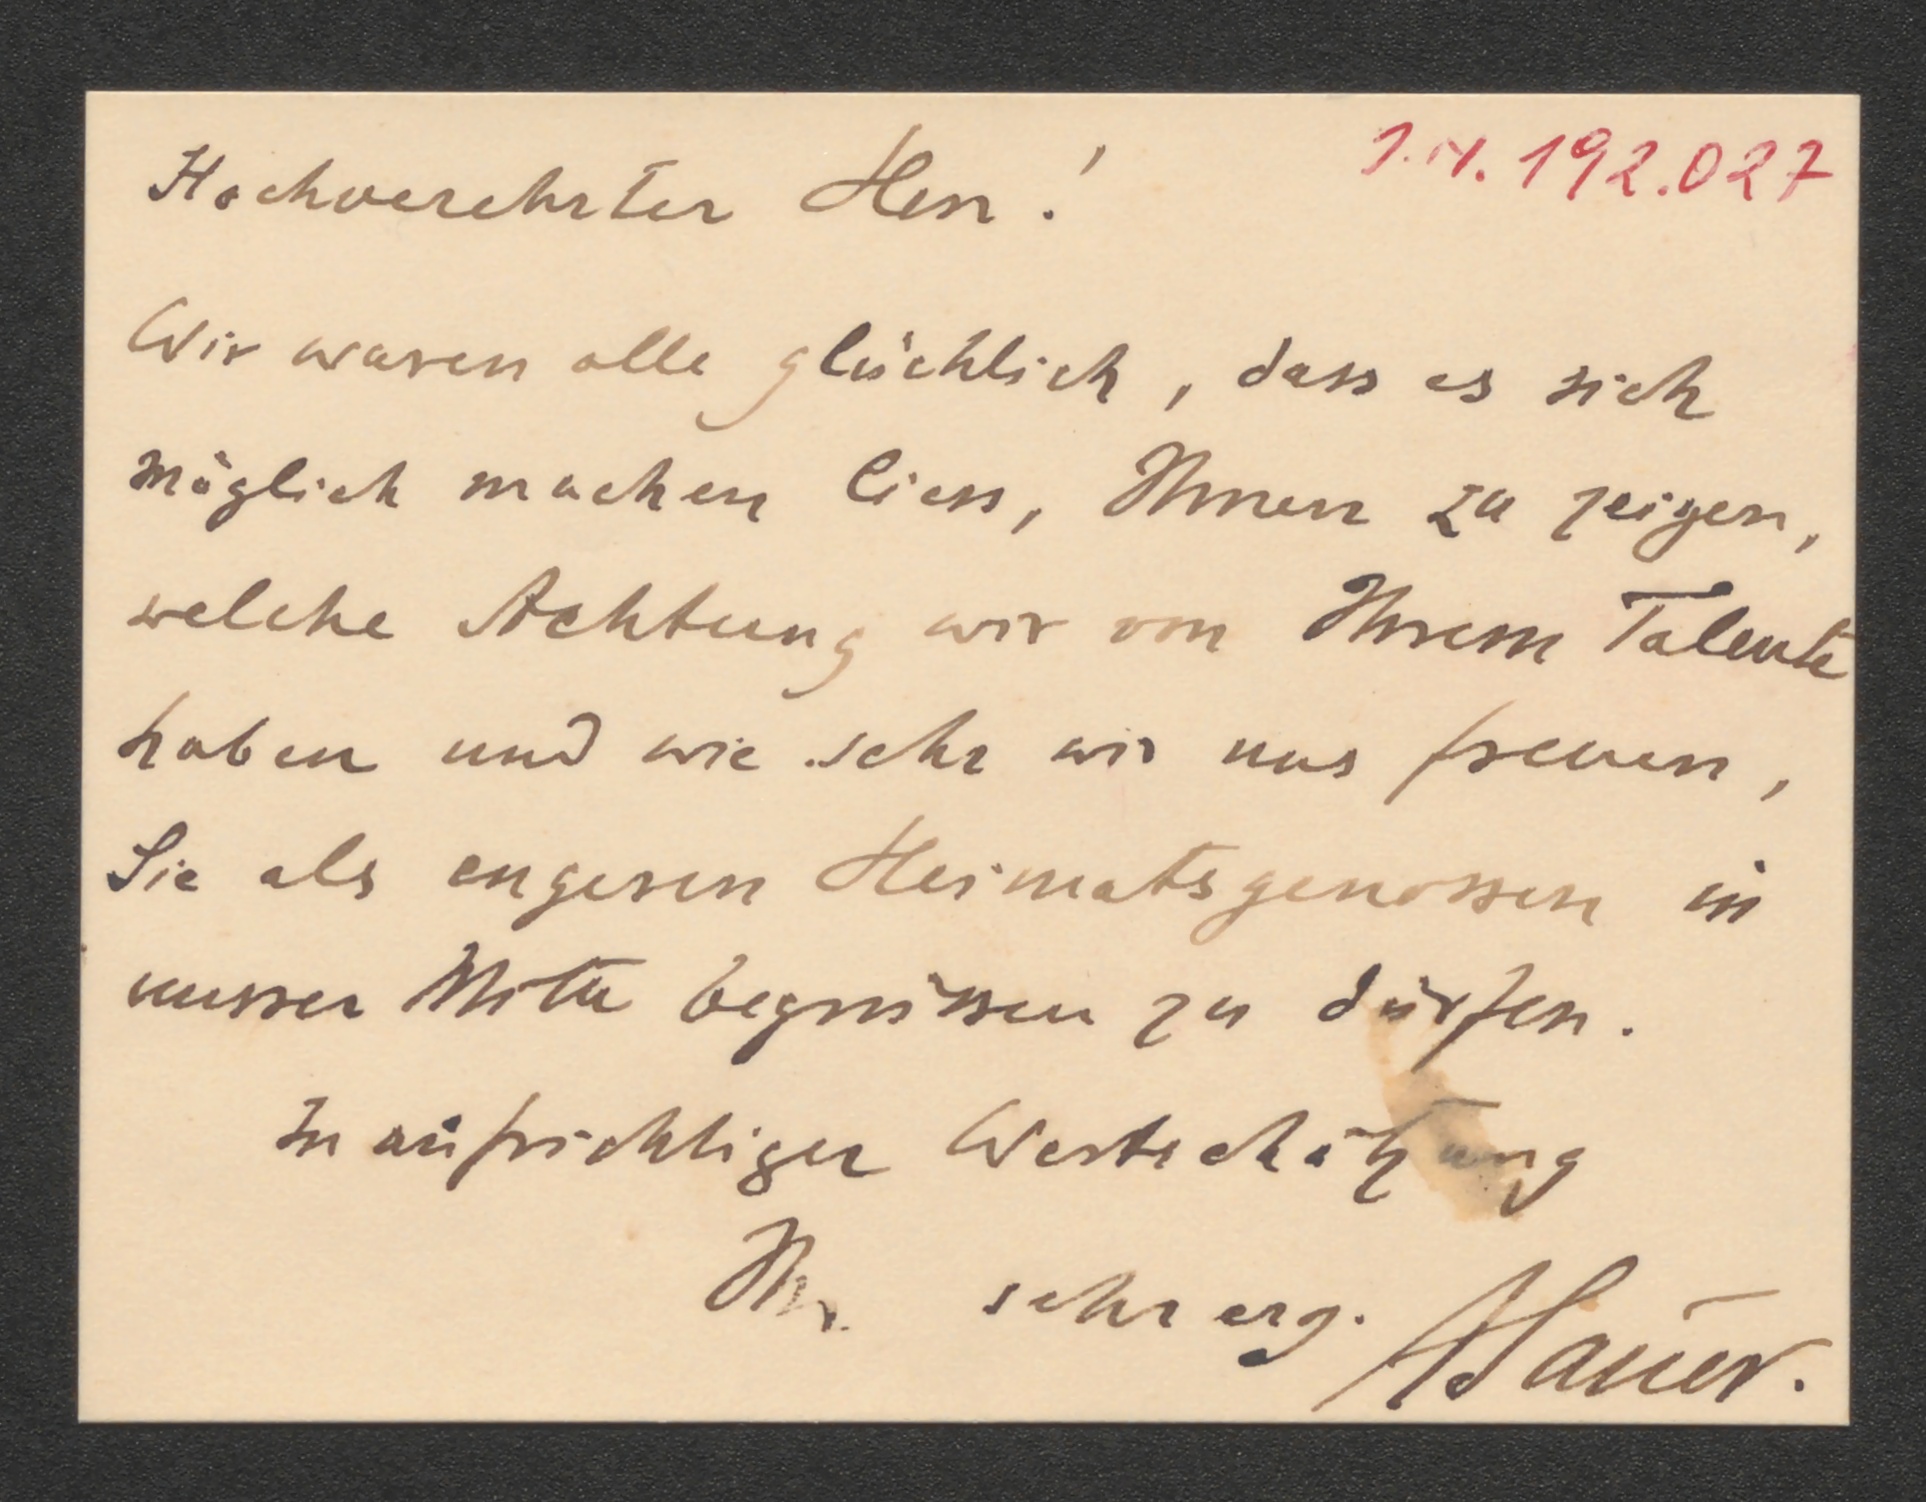 Hochverehrter Herr!
I.N. 192.027
Wir waren alle glücklich, dass es sich
möglich machen liess, Ihnen zu zeigen,
welche Achtung wir von Ihrem Talente
haben und wie sehr wir uns freuen,
Sie als engeren Heimatsgenossen in
unsrer Mitte begrüssen zu dürfen.
In aufrichtiger Wertschätzung
Ihr sehr erg. ASauer.